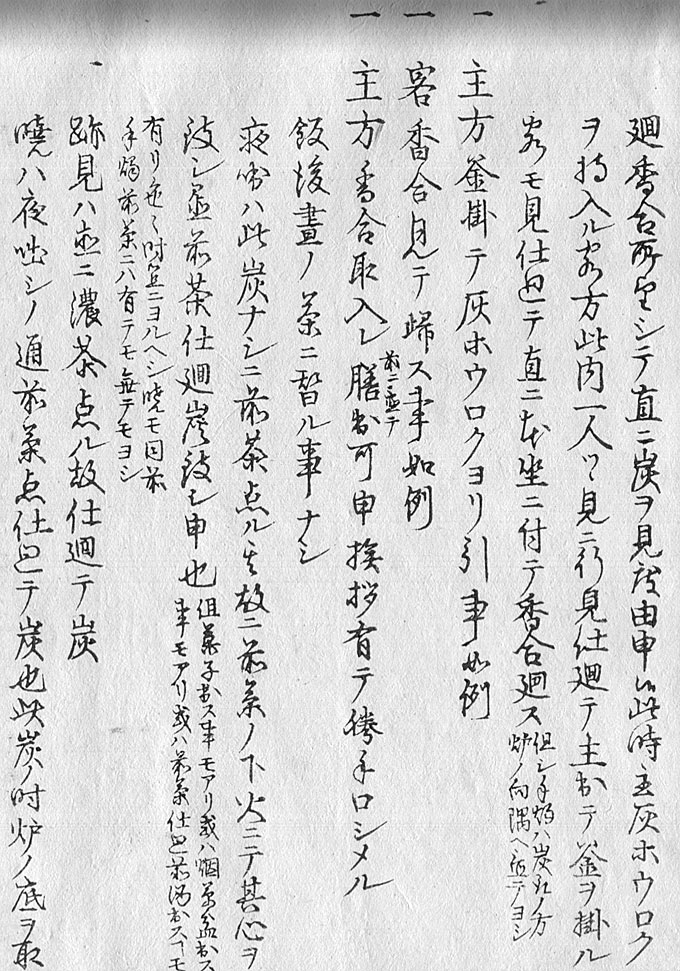 廻香合所望シテ直ニ炭ヲ見度由申候此時主灰ホウロク
ヲ持入ル客方此内一人ツヽ見ニ行見仕廻テ主出テ釜ヲ掛ル
客モ見仕廻テ直ニ本坐ニ付テ香合廻ス 但シ手燭ハ炭取ノ方
炉ノ向隅ヘ近テヨシ
一 主方釜掛テ灰ホウロクヨリ引事如例
一 客香合見テ帰ス事如例
一 主方香合取入レ膳出可申挨拶有テ勝手口シメル
飯後昼ノ茶ニ替ル事ナシ
夜咄ハ此炭ナシニ前茶点ル故ニ前茶ノ下火ニテ其心ヲ
致シ前茶仕廻炭致シ申也 但菓子出ス事モアリ或ハ烟草盆出ス
事モアリ或ハ前茶仕廻前湯出ス事モ
有リ色々時宜ニヨルヘシ暁モ同前
手燭前茶ニハ有テモ無テモヨシ
一 跡見ハ直ニ濃茶点ル故仕廻テ炭
暁ハ夜咄シノ通前茶点仕廻テ炭也此炭ノ時炉ノ底ヲ取